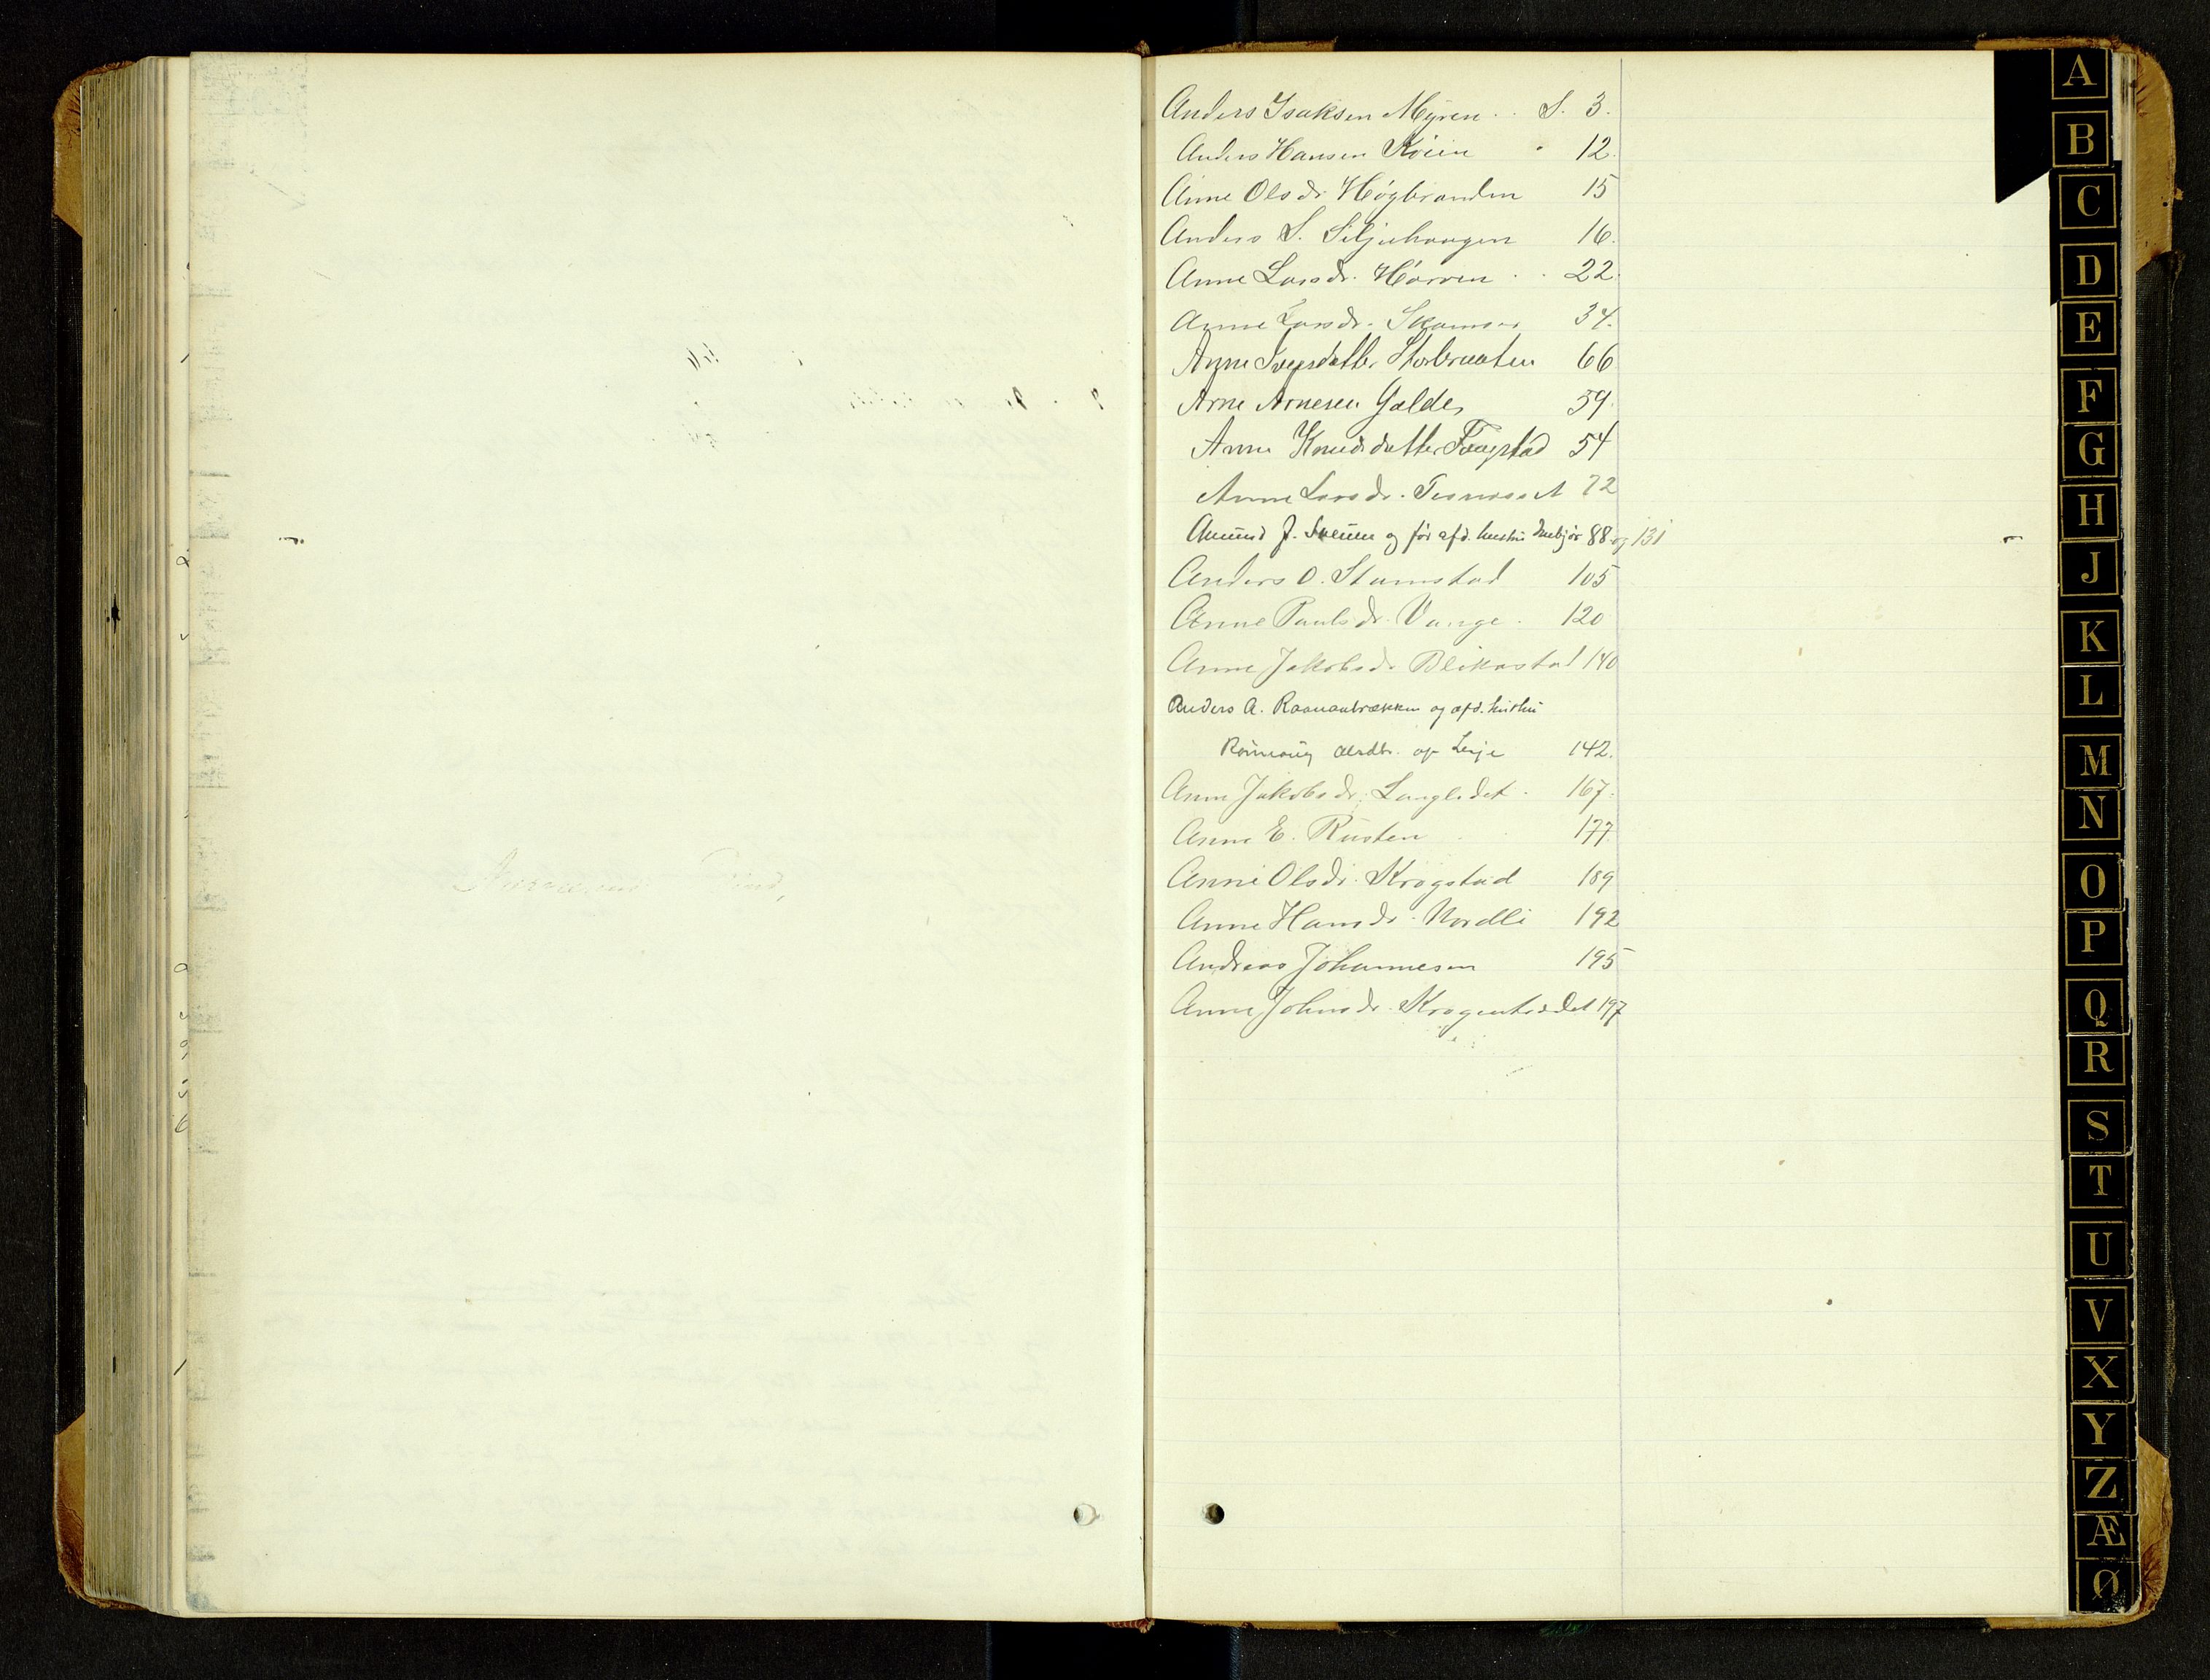 Anders Isaksen Myren . . S. 3.
Anders Hansen Kvien " 12.
Anne Olsdr. Høgbranden 15
Anders S. Siljuhaugen 16.
Anne Larsdr. Harven . . 22.
Anne Larsdr. Skamsar 34.
Anne Iversdatter Storbraaten 66
Arne Arnesen Galde 59.
Anne Knudsdatter Faugstad 54
Anne Larsdr. 72
Amund J. og før afd. hustru 88 og 131
Anders O. Stamstad 105
Anne Paulsdr. Vange . 120
Anne Jakobsdr. Blikastad 140
Anders A. Raanaabrækken og afd. hustru
Rønnaug Olsdtr. af Lesje 142.
Anne Jakobsdr. Langledet . 167.
Anne E. Rusten 177
Anne Olsdr. Krogstad 189
Anne Hansdr. Nordli 192
Andreas Johannesen 195
Anne Johnsdr. 197
A
B
C
D
E
F
G
H
J
K
L
M
N
O
P
Q
R
S
T
U
V
X
Y
Z
Æ
Ø